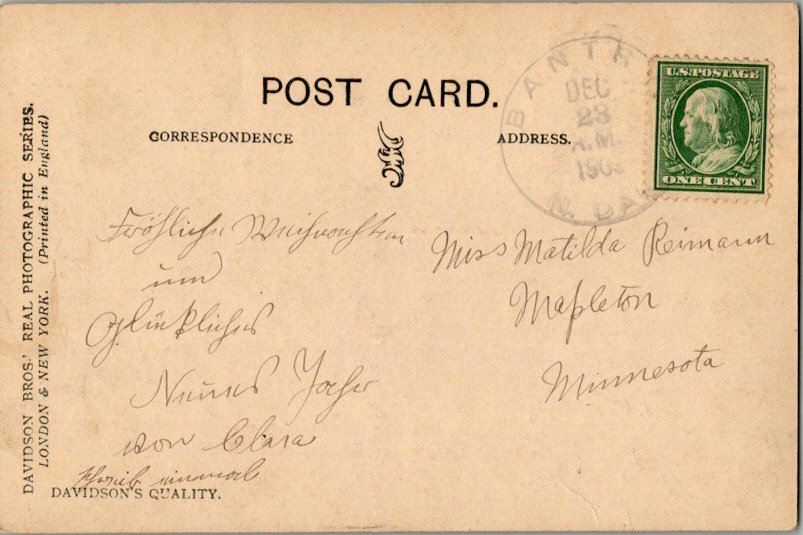 POST CARD.
CORRESPONDENCE
ADDRESS.
BANTR
DEC
23
A.M.
190
N. DAK
U.S. POSTAGE
ONE CENT
DAVIDSON BROS.' REAL PHOTOGRAPHIC SERIES.
LONDON & NEW YORK. (Printed in England)
Fröhliche Weihnachten
und
Glückliches
Neues Jahr
von Clara
schreib einmal
Miss Matilda Reimann
Mapleton
Minnesota
DAVIDSON'S QUALITY.